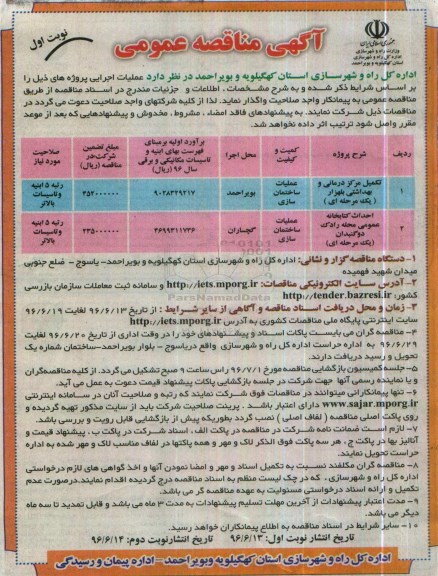 جمهوری اسلامی ایران
وزارت راه و شهرسازی
اداره کل راه و شهرسازی
استان کهگیلویه و بویراحمد
آگهی مناقصه عمومی
نوبت اول
اداره کل راه و شهرسازی استان کهگیلویه و بویراحمد در نظر دارد عملیات اجرایی پروژه های ذیل را
بر اساس شرایط ذکر شده و به شرح مشخصات ، اطلاعات و جزئیات مندرج در اسناد مناقصه از طریق
مناقصه عمومی به پیمانکار واجد صلاحیت واگذار نماید. لذا از کلیه شرکتهای واجد صلاحیت دعوت می گردد در
مناقصات ذیل شـرکت نمایند. به پیشنهادهای فاقد امضاء ، مشروط ، مخدوش و پیشنهادهایی که بعد از موعد
مقرر واصل شود ترتیب اثر داده نخواهد شد.
ردیف | شرح پروژه | کمیت و کیفیت | محل اجرا | برآورد اولیه برمبنای فهرست بهای ابنیه و تاسیسات مکانیکی و برقی سال ۹۶ (ریال) | مبلغ تضمین شرکت در مناقصه (ریال) | صلاحیت مورد نیاز
۱ | تکمیل مرکز درمانی و بهداشتی بلهزار (یک مرحله ای) | عملیات ساختمان سازی | بویراحمد | ۹۰۲۸۳۲۹۲۱۷ | ۴۵۲۰۰۰۰۰۰ | رتبه ۵ ابنیه وتاسیسات بالاتر
۲ | احداث کتابخانه عمومی محله رادک دوگنبدان (یک مرحله ای) | عملیات ساختمان سازی | گچساران | ۴۶۹۹۳۱۱۷۳۶ | ۲۳۵۰۰۰۰۰۰ | رتبه ۵ ابنیه وتاسیسات بالاتر
۱- دستگاه مناقصه گزار و نشانی: اداره کل راه و شهرسازی استان کهگیلویه و بویراحمد- یاسوج - ضلع جنوبی
میدان شهید فهمیده
۲- آدرس سایت الکترونیکی مناقصات: http://iets.mporg.ir و سامانه ثبت معاملات سازمان بازرسی
کشور: http://tender.bazresi.ir
۳- زمان و محل دریافت اسناد مناقصه و آگاهی از سایر شـرایط : از تاریخ ۹۶/۶/۱۳ لغایت ۹۶/۶/۱۹
سایت اینترنتی پایگاه ملی مناقصات کشوری به آدرس http://iets.mporg.ir
۴- مناقصه گران می بایست پاکات اسناد و پیشنهادهای خود را در وقت اداری از تاریخ ۹۶/۶/۲۰ لغایت
۹۶/۶/۲۹ به اداره حراست اداره کل راه و شهرسازی واقع دریاسوج - بلوار بویراحمد-ساختمان شماره یک
تحویل و رسید دریافت دارند.
۵- جلسه کمیسیون بازگشایی مناقصه مورخ ۹۶/۷/۱ راس ساعت ۹ صبح تشکیل می گردد. از کلیه مناقصه‌گران
و یا نماینده رسمی آنها جهت شرکت در جلسه بازگشایی پاکات پیشنهاد قیمت دعوت به عمل می آید.
۶- تنها پیمانکارانی میتوانند در مناقصات فوق شرکت نمایند که رتبه و صلاحیت آنان در سامانه اینترنتی
www.sajar.mporg.ir دارای اعتبار باشد . پرینت صلاحیت شرکت باید از سایت مذکور تهیه گردیده و
روی پاکت اصلی مناقصه ( لفاف اصلی ) نصب گردد بطوریکه پیش از بازگشایی قابل رویت و بررسی باشد.
۷- لازم است ضمانت نامه شـرکت در مناقصه در پاکت الف ، اسناد شرکت در پاکت ب ، پیشنهاد قیمت و
آنالیز بها در پاکت ج ، هر سه پاکت فوق الذکر لاک و مهر و همه پاکتها در لفاف مناسب لاک و مهر شده به اداره
حراست تحویل نمایند.
۸- مناقصه گران مکلفند نسبت به تکمیل اسناد و مهر و امضا نمودن آنها و اخذ گواهی های لازم درخواستی
اداره کل راه و شهرسازی ، که در چک لیست منظم به اسناد مناقصه درج گردیده اقدام نمایند.درصورت عدم
تکمیل و ارائه اسناد درخواستی مسئولیت به عهده مناقصه گر می باشد.
۹- مدت اعتبار پیشنهادات از آخرین مهلت تسلیم پیشنهادات به مدت ۳ ماه می باشد و قابل تمدید تا سه ماه
دیگر می باشد.
۱۰- سایر شرایط در اسناد مناقصه به اطلاع پیمانکاران خواهد رسید.
تاریخ انتشار نوبت اول: ۹۶/۶/۱۳ تاریخ انتشارنوبت دوم: ۹۶/۶/۱۴
اداره کل راه و شهرسازی استان کهگیلویه و بویراحمد - اداره پیمان و رسیدگی